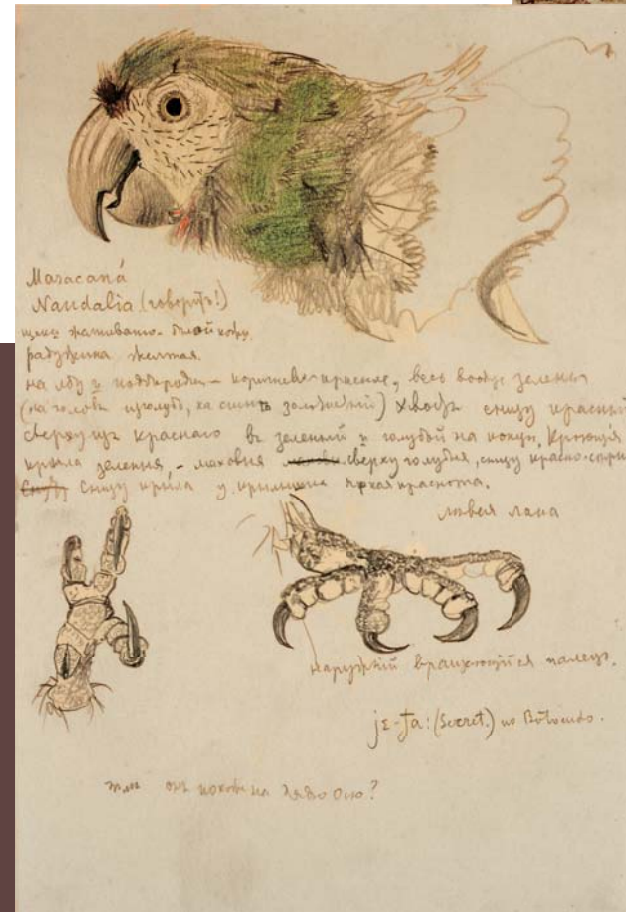 Maracaná
Nandalia (говоритъ!)
щеки желтовато-бѣлой кожи.
радужина желтая.
на лбу и подбородкѣ – коричнево-красное, весь вообще зеленый
(на головѣ изголуб, на спинѣ) хвостъ снизу красный
сверху изъ краснаго въ зеленый и голубой на концѣ. Кроющія
крыла зеленыя, – маховыя сверху голубыя, снизу красно-сѣрые
снизу крыла у яркая краснота.
лѣвая лапа
наружный вращающійся палецъ.
je-ta: (Secret.) по Botocudo.
онъ похожъ на ?